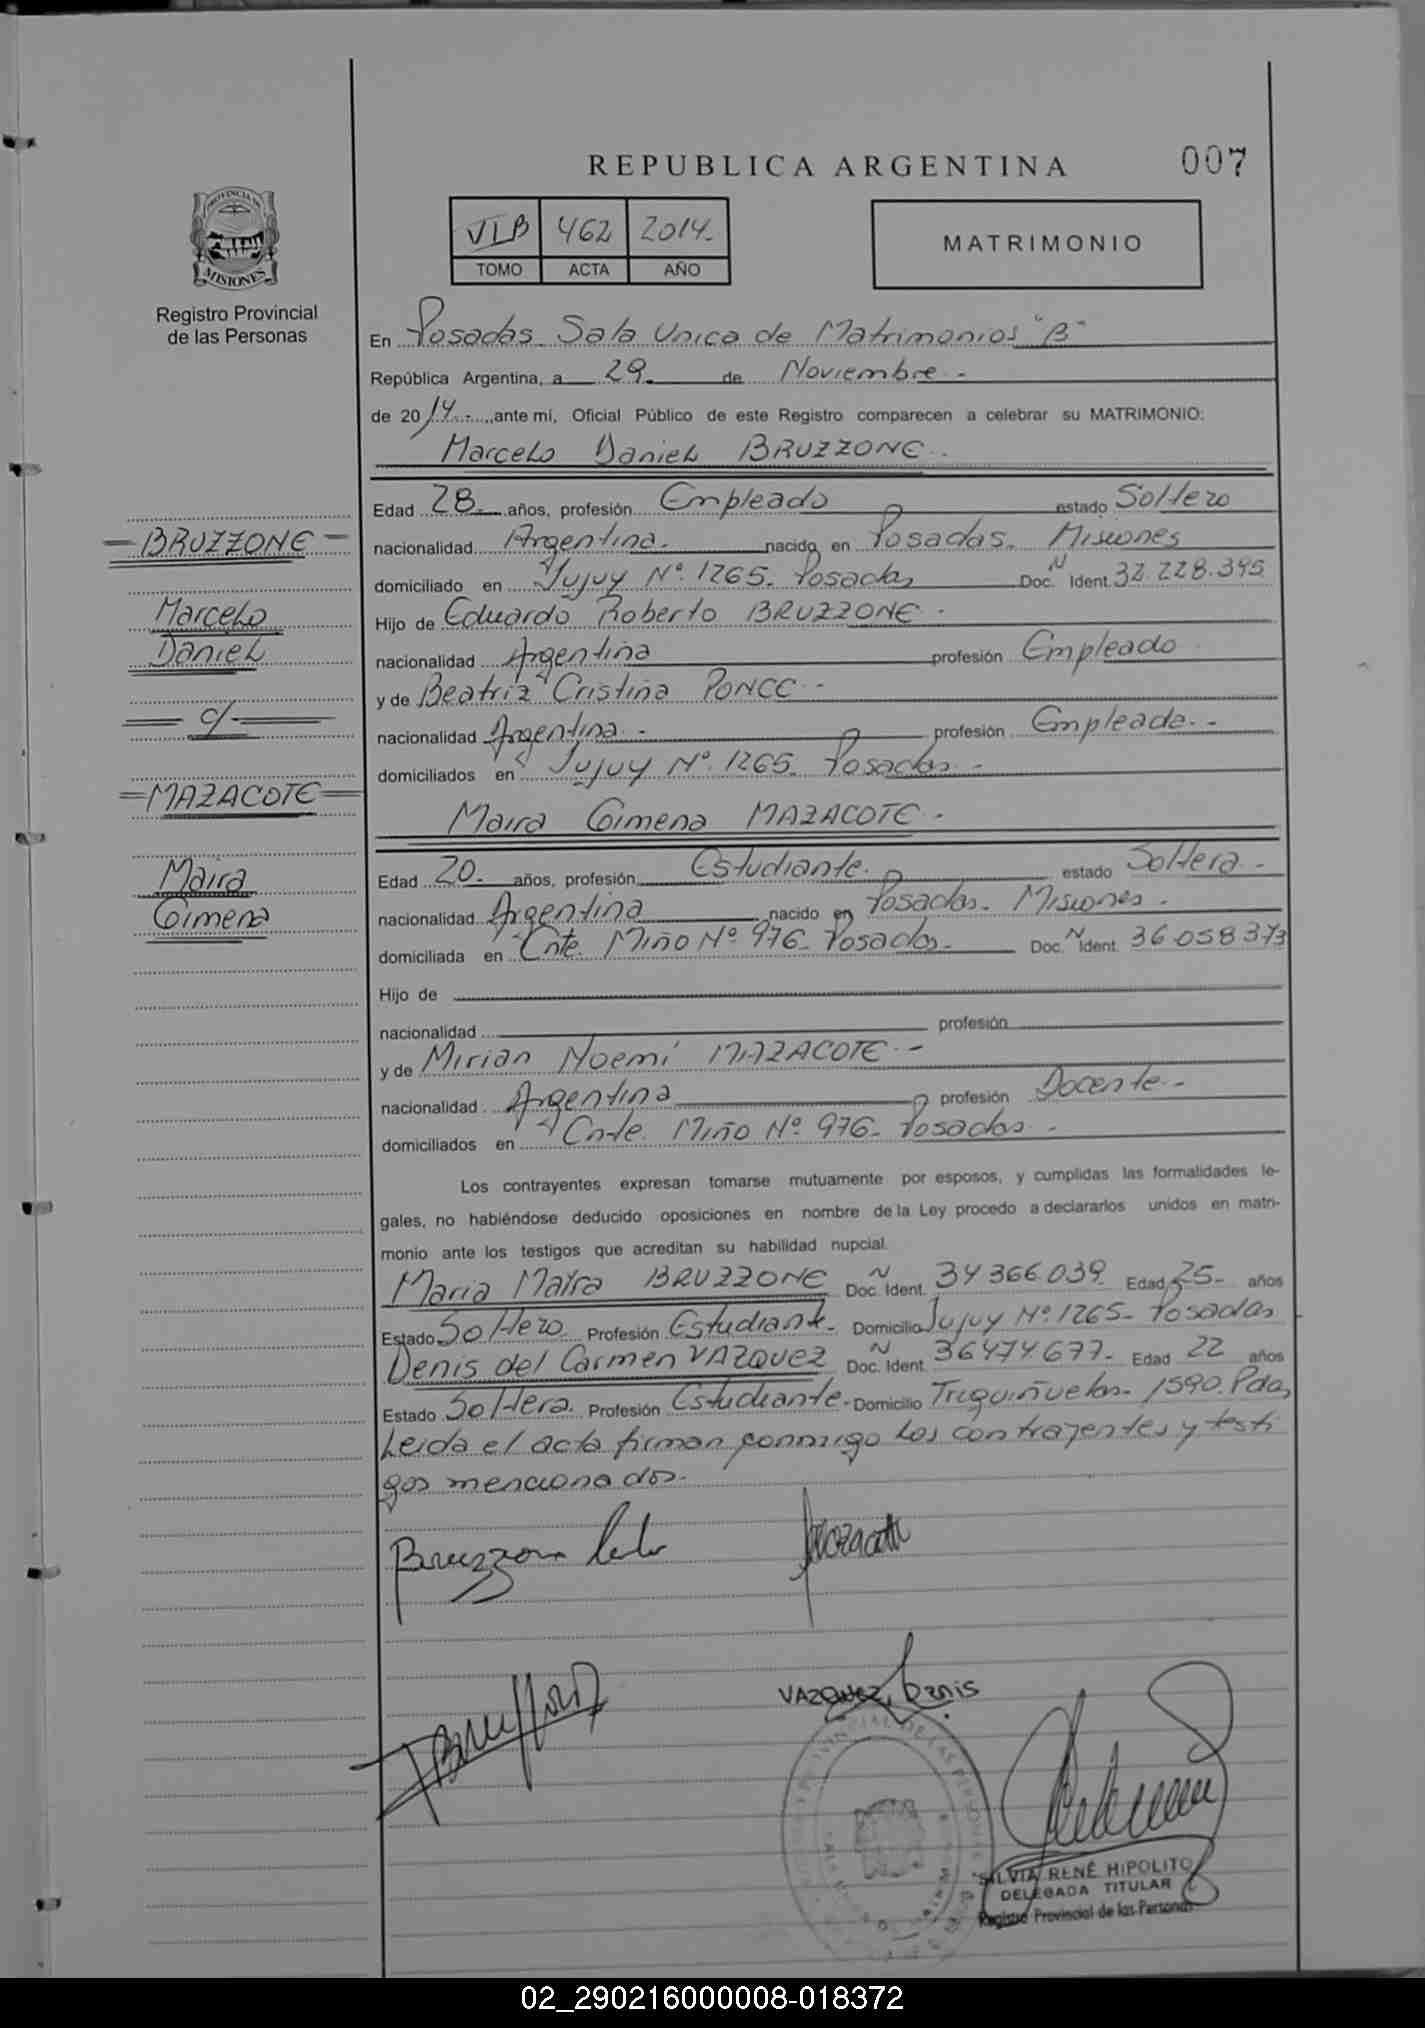 REPUBLICA ARGENTINA
007
PROVINCIA DE
MISIONES
Registro Provincial
de las Personas
VI B 462 2014.-
TOMO ACTA AÑO
MATRIMONIO
En Posadas. Sala Unica de Matrimonios "B"
República Argentina, a 29. de Noviembre.-
de 2014.-, ante mí, Oficial Público de este Registro comparecen a celebrar su MATRIMONIO:
Marcelo Daniel BRUZZONE.-
Edad 28. años, profesión Empleado estado Soltero
nacionalidad Argentina. nacido en Posadas. Misiones
domiciliado en Jujuy Nº. 1265. Posadas Doc. N Ident. 32.228.395
Hijo de Eduardo Roberto BRUZZONE.-
nacionalidad Argentina profesión Empleado
y de Beatriz Cristina PONCE.-
nacionalidad Argentina.- profesión Empleada.-
domiciliados en Jujuy Nº. 1265. Posadas.-
Maira Gimena MAZACOTE.-
Edad 20. años, profesión Estudiante. estado Soltera.-
nacionalidad Argentina nacido en Posadas. Misiones.
domiciliada en Cnte. Miño Nº 976. Posadas.- Doc. N Ident. 36 058 373
Hijo de
nacionalidad profesión
y de Mirian Noemí MAZACOTE.-
nacionalidad Argentina profesión Docente.-
domiciliados en Cnte. Miño Nº 976. Posadas.-
Los contrayentes expresan tomarse mutuamente por esposos, y cumplidas las formalidades le-
gales, no habiéndose deducido oposiciones en nombre de la Ley procedo a declararlos unidos en matri-
monio ante los testigos que acreditan su habilidad nupcial.
Maria BRUZZONE Doc. N Ident. 34 366 039. Edad 25.- años
Estado Soltero. Profesión Estudiante. Domicilio Jujuy Nº. 1265. Posadas
Denis del Carmen VAZQUEZ Doc. N Ident. 36474677. Edad 22 años
Estado Soltera. Profesión Estudiante.- Domicilio 1590. Pdas,
Leida el acta firman conmigo los contrayentes y testi
gos mencionados.-
=BRUZZONE=
Marcelo
Daniel
= c/. =
=MAZACOTE=
Maira
Gimena
Bruzzone
Mazacote
VAZQUEZ, Denis
SILVIA RENÉ HIPOLITO
DELEGADA TITULAR
Registro Provincial de las Personas
02_290216000008-018372